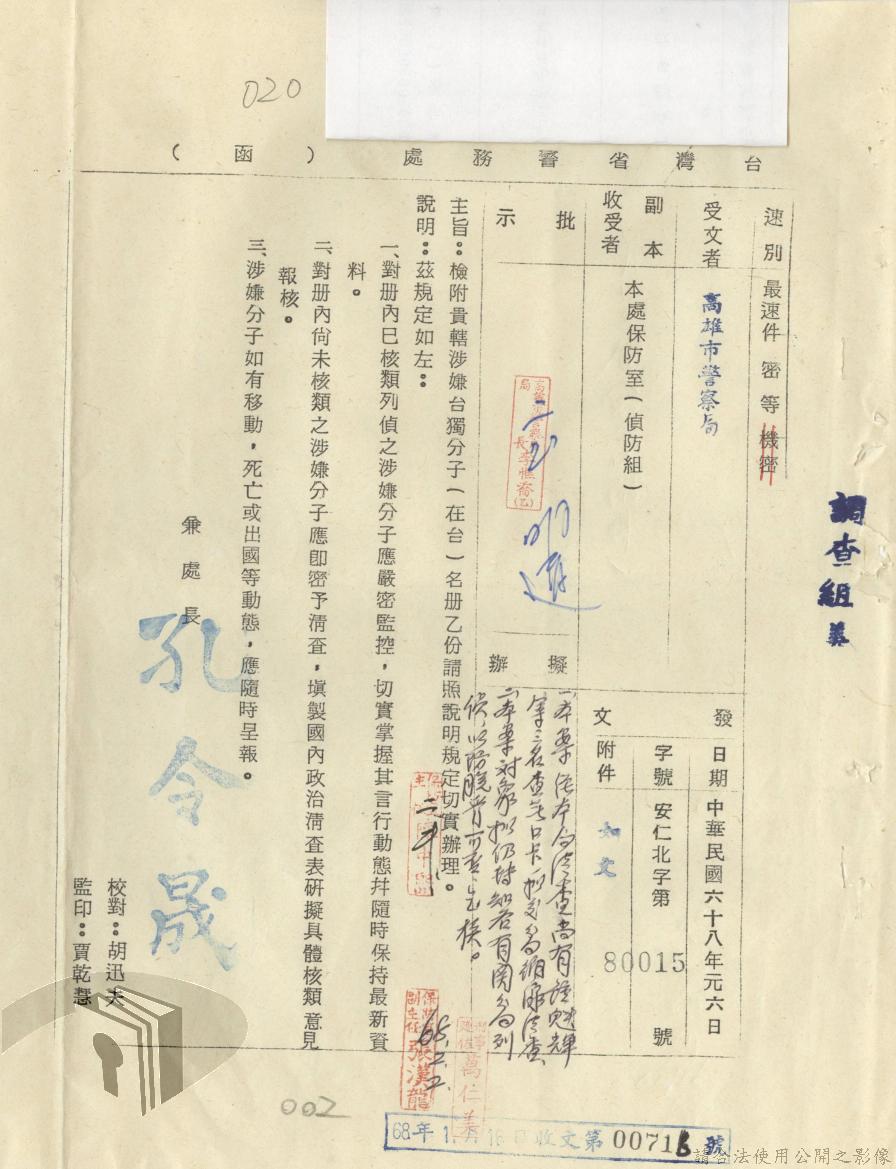 020
台灣省警務處（函）
調查組
速別 最速件 密等 機密
受文者 高雄市警察局
副本收受者 本處保防室（偵防組）
發文
日期 中華民國六十八年元六日
字號 安仁北字第80015號
附件 如文
批示
擬辦
主旨：檢附貴轄涉嫌台獨分子（在台）名册乙份請照說明規定切實辦理。
說明：茲規定如左：
一、對册內已核類列偵之涉嫌分子應嚴密監控，切實掌握其言行動態幷隨時保持最新資
料。
二、對册內尙未核類之涉嫌分子應卽密予淸查，塡製國內政治淸查表硏擬具體核類意見
報核。
三、涉嫌分子如有移動，死亡或出國等動態，應隨時呈報。
兼處長 孔令晟
校對：胡迅夫
監印：賈乾慧
保防室副主任 張漢龍
68.2.2.
68年1月16日收文第00716號
002
請合法使用公開之影像